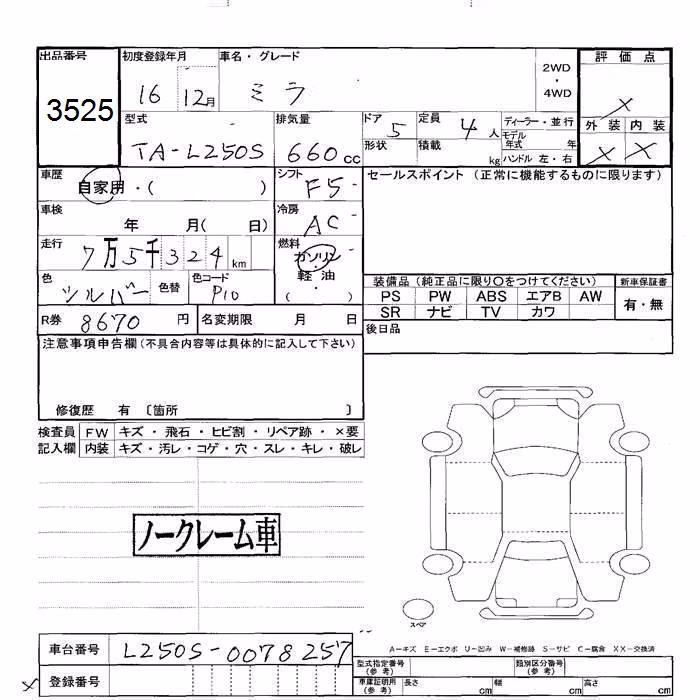 出品番号 初度登録年月 車名・グレード 2WD ・ 4WD 評価点
3525 16 12月 ミラ ×
型式 排気量 ドア 定員 ディーラー・並行 外装 内装
TA-L250S 660cc 5 4人 モデル年式 年 × ×
形状 積載 kg ハンドル 左・右
車歴 自家用・( ) シフト F5 セールスポイント (正常に機能するものに限ります)
車検 年 月( 日) 冷房 AC
走行 7万5千324km 燃料 ガソリン・軽油・( )
色 シルバー 色替 色コード P10 装備品 (純正品に限り○をつけてください) 新車保証書
PS PW ABS エアB AW 有・無
SR ナビ TV カワ
R券 8670円 名変期限 月 日 後日品
注意事項申告欄(不具合内容等は具体的に記入して下さい)
修復歴 有 〔箇所 〕
検査員 FW キズ・飛石・ヒビ割・リペア跡・×要
記入欄 内装 キズ・汚レ・コゲ・穴・スレ・キレ・破レ
ノークレーム車
スペア
A-キズ E-エクボ U-凹み W-補修跡 S-サビ C-腐食 XX-交換済
車台番号 L250S-0078257
型式指定番号(参考) 類別区分番号(参考)
× 登録番号
車庫証明用(参考) 長さ cm 幅 cm 高さ cm